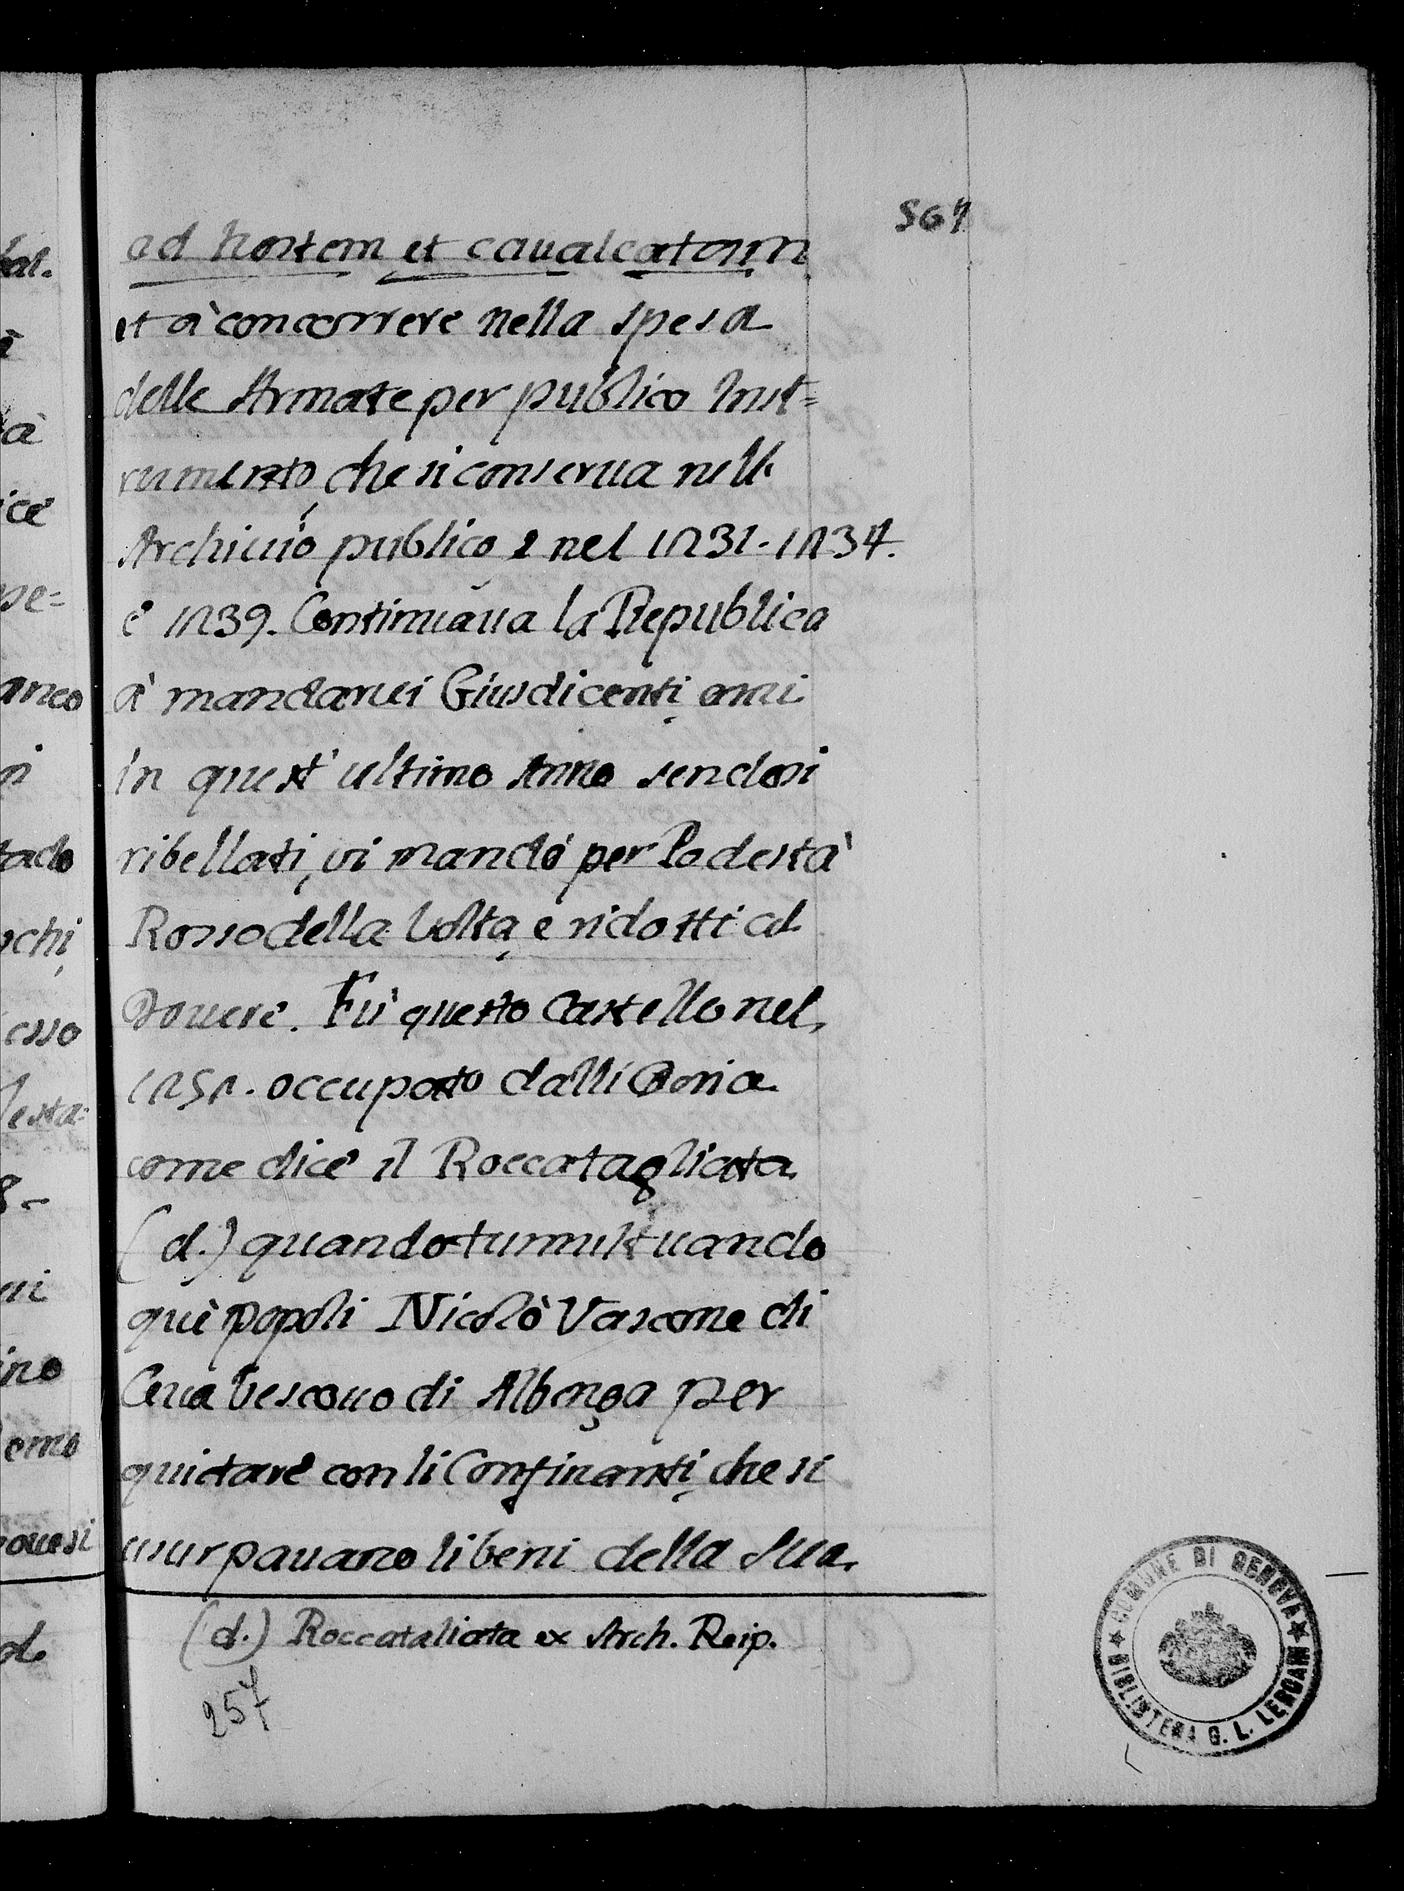 567
ad hostem et caualcatam
et à concorrere nella spesa
delle Armate per publico Inst=
rumento, che si conserua nell
Archiuio publico, e nel 1231. 1234.
è 1239. Continuaua la Republica
à mandarui Giusdicenti, anzi
in quest' ultimo Anno sendosi
ribellati, vi mandò per Podestà
Rosso della Volta, e ridotti al
Douere. Fù questo Castello nel,
1252. occupato dalli Doria
come dice il Roccatagliata
(d.) quando tumultuando
què popoli Nicolò Vascone di
Ceua Vescouo di Albenga per
quietare con li Confinanti, che si
usurpauano li beni della Sua,
(d.) Roccataliata ex Arch. Reip.
257
COMUNE DI GENOVA
BIBLIOTECA G. L. LERCARI